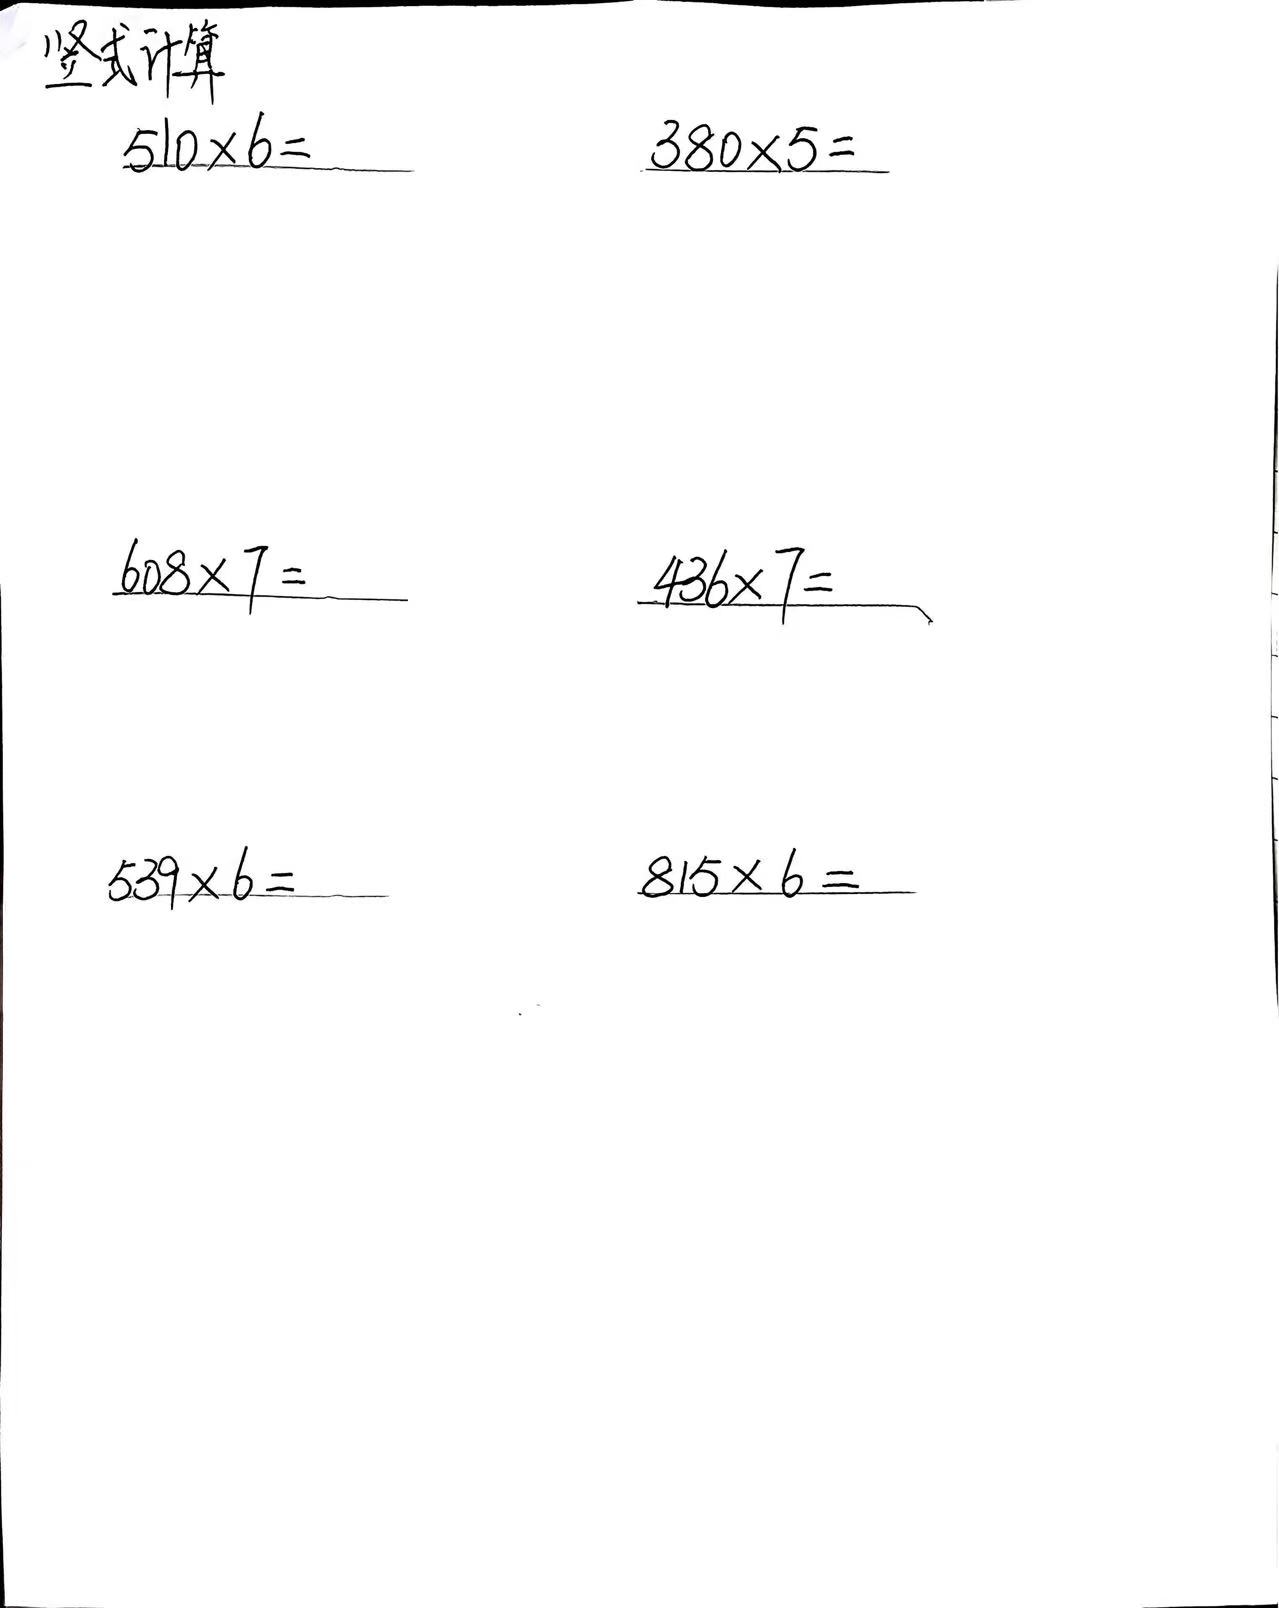 竖式计算
510×6=
380×5=
608×7=
436×7=
539×6=
815×6=